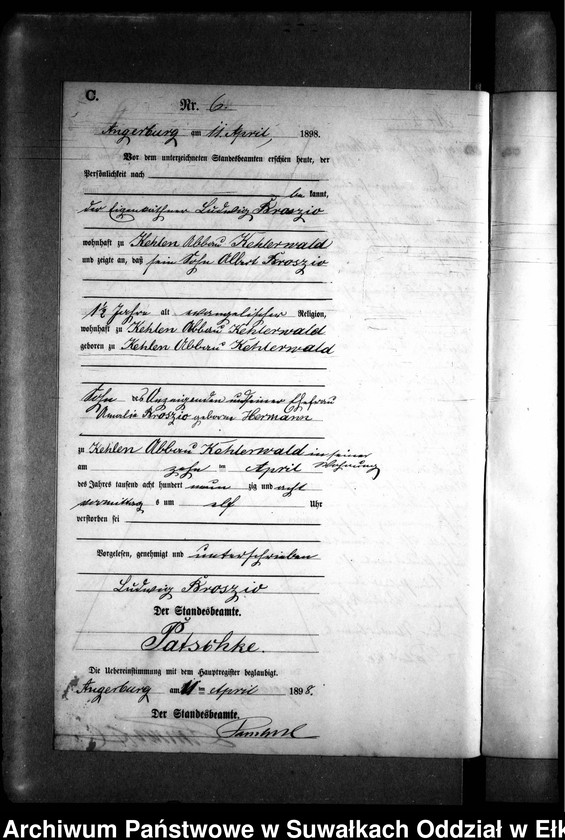 C.
Nr. 6.
Angerburg am 11 April, 1898.
Vor dem unterzeichneten Standesbeamten erschien heute, der
Persönlichkeit nach
be kannt,
der Eigenkäthner Ludwig Kroszio
wohnhaft zu Kehlen Abbau Kehlerwald
und zeigte an, daß sein Sohn Albert Kroszio
1½ Jahre alt evangelischer Religion,
wohnhaft zu Kehlen Abbau Kehlerwald
geboren zu Kehlen Abbau Kehlerwald
Sohn des Anzeigenden und seiner Ehefrau
Amalie Kroszio geborne Hermann
zu Kehlen Abbau Kehlerwald in seiner Wohnung
am zehn ten April
des Jahres tausend acht hundert neun zig und acht
vormittag s um elf Uhr
verstorben sei
Vorgelesen, genehmigt und unterschrieben
Ludwig Kroszio
Der Standesbeamte.
Patschke.
Die Uebereinstimmung mit dem Hauptregister beglaubigt.
Angerburg am 11 ten April 1898.
Der Standesbeamte.
Archiwum Państwowe w Suwałkach Oddział w Ełk